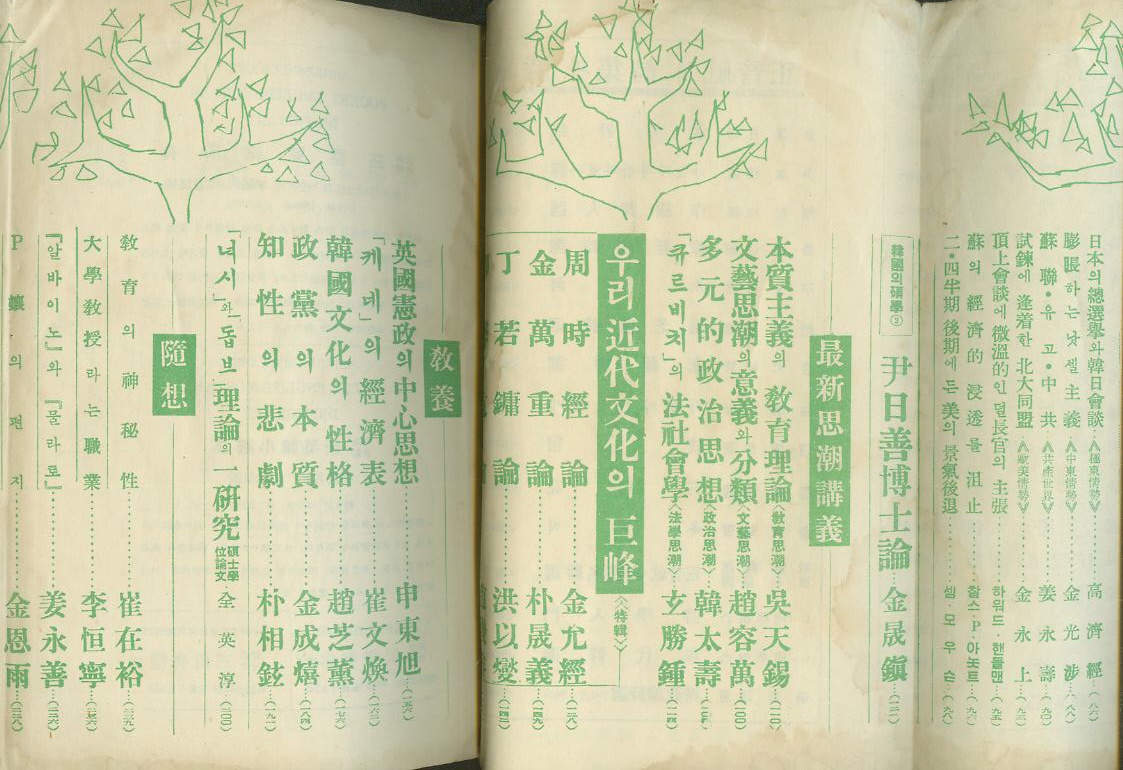 日本의總選擧와韓日會談 ≪極東情勢≫ 高濟經 (八六)
膨脹하는낫셀主義 ≪中東情勢≫ 金光涉 (八八)
蘇聯・유고・中共 ≪共産世界≫ 姜永壽 (九〇)
試鍊에逢着한北大同盟 ≪歐美情勢≫ 金永上
頂上會談에微溫的인덜長官의主張 하워드・핸들맨 (九五)
蘇의經濟的浸透를沮止 찰스・P・아놋트
二・四半期後期에든美의景氣後退 쌤・모우슨 (九八)
韓國의碩學②
尹日善博士論 金晟鎭 (一二一)
最新思潮講義
本質主義의敎育理論 <敎育思潮> 吳天錫 (一一〇)
文藝思潮의意義와分類 <文藝思潮> 趙容萬 (一〇〇)
多元的政治思想 <政治思潮> 韓太壽
「큐르비치」의法社會學 <法學思潮> 玄勝鍾 (一一四)
우리近代文化의巨峰 <特輯>
周時經論 金允經 (一三八)
金萬重論 朴晟義 (一四九)
丁若鏞論 洪以燮 (一四一)
敎養
英國憲政의中心思想 申東旭 (一五六)
「케네」의經濟表 崔文煥 (一六三)
韓國文化의性格 趙芝薰 (一七六)
政黨의本質 金成熺 (一八四)
知性의悲劇 朴相鉉 (一九一)
「녀시」와「돕브」理論의一硏究 碩士學位論文 全英淳 (二〇〇)
隨想
敎育의神秘性 崔在裕 (二三九)
大學敎授라는職業 李恒寧
『알바이노』와『물라토』 姜永善 (二三六)
P孃의편지 金恩雨 (二三八)